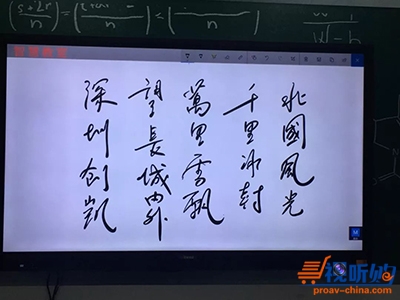 北國風光
千里冰封
萬里雪飄
望長城內外
深圳創凱
視听购
proav-china.com